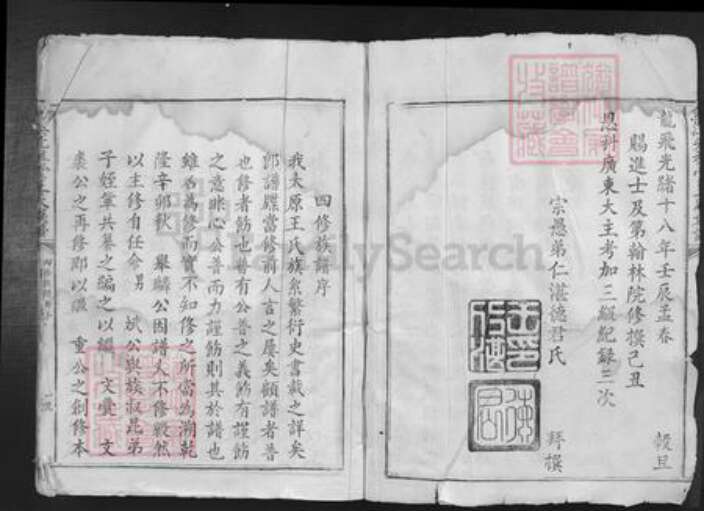 龍飛光緒十八年壬辰孟春 穀旦
賜進士及第翰林院修撰己丑
恩科廣東大主考加三級紀錄三次
宗愚弟仁湛德君氏 拜撰
四修族譜序
我太原王氏族系繁衍史書載之詳矣
郎譜牒當修前人言之屢矣顧譜者普
也修者飭也普有公普之義飭有謹飭
之意非心公普而力謹飭則其於譜也
雖名為修而實不知修之所當為溯乾
隆辛卯秋 舉麟公因譜久不修毅然
以主修自任命男 斌公與族叔昆弟
子姪輩共纂之編之以繼 文彙 文
公之再修即以繼 重公之創修本
FamilySearch